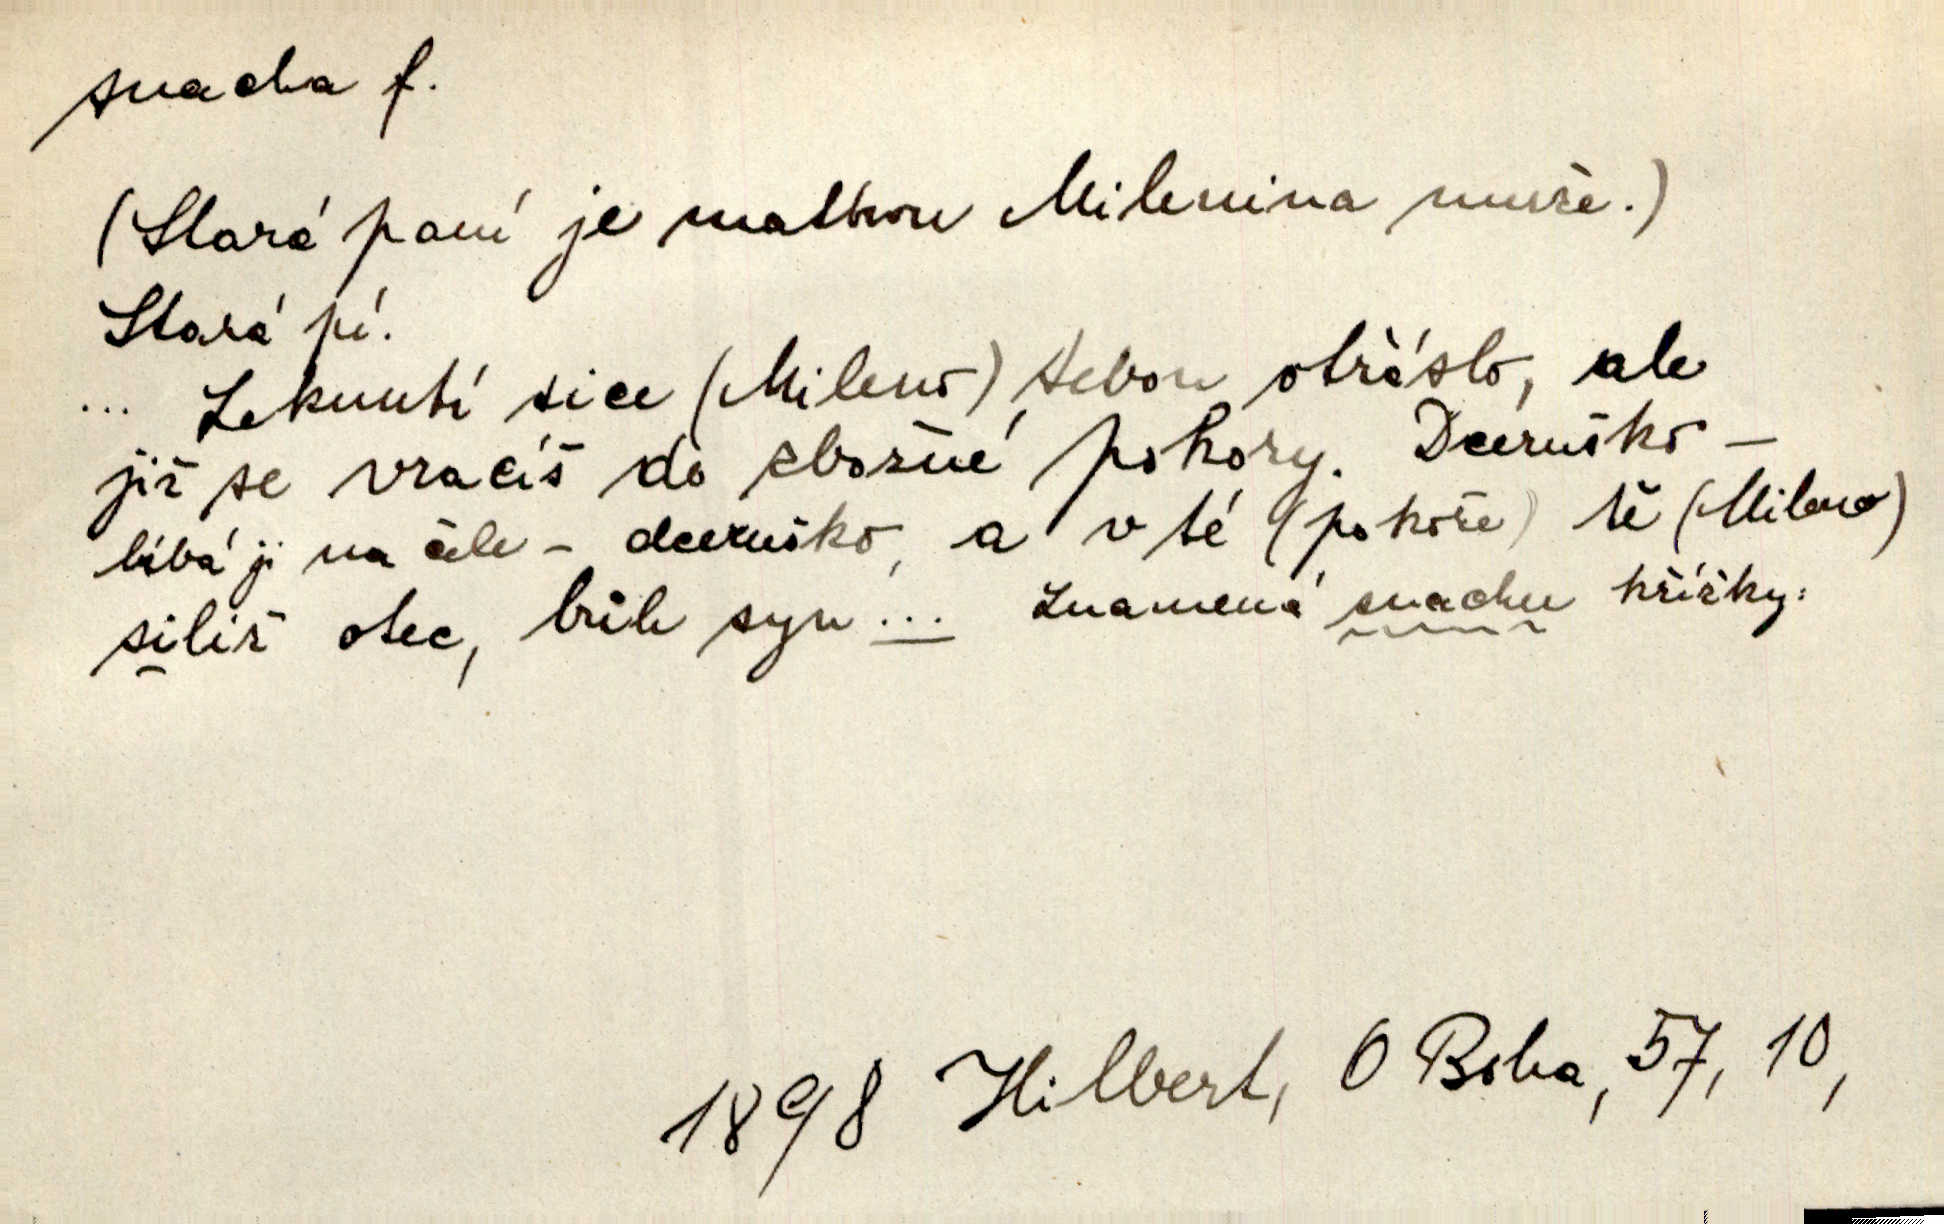 snacha f.
(Stará paní je matkou Milenina muže.)
Stará pí.
... Leknutí sice (Mileno) tebou otřáslo, ale
již se vracíš do zbožné pokory. Dceruško –
líbá ji na čele – dceruško, a v té (pokoře) tě (Mileno)
siliž otec, bůh syn ... znamená snachu křížky:
1898 Hilbert, O Boha, 57, 10,